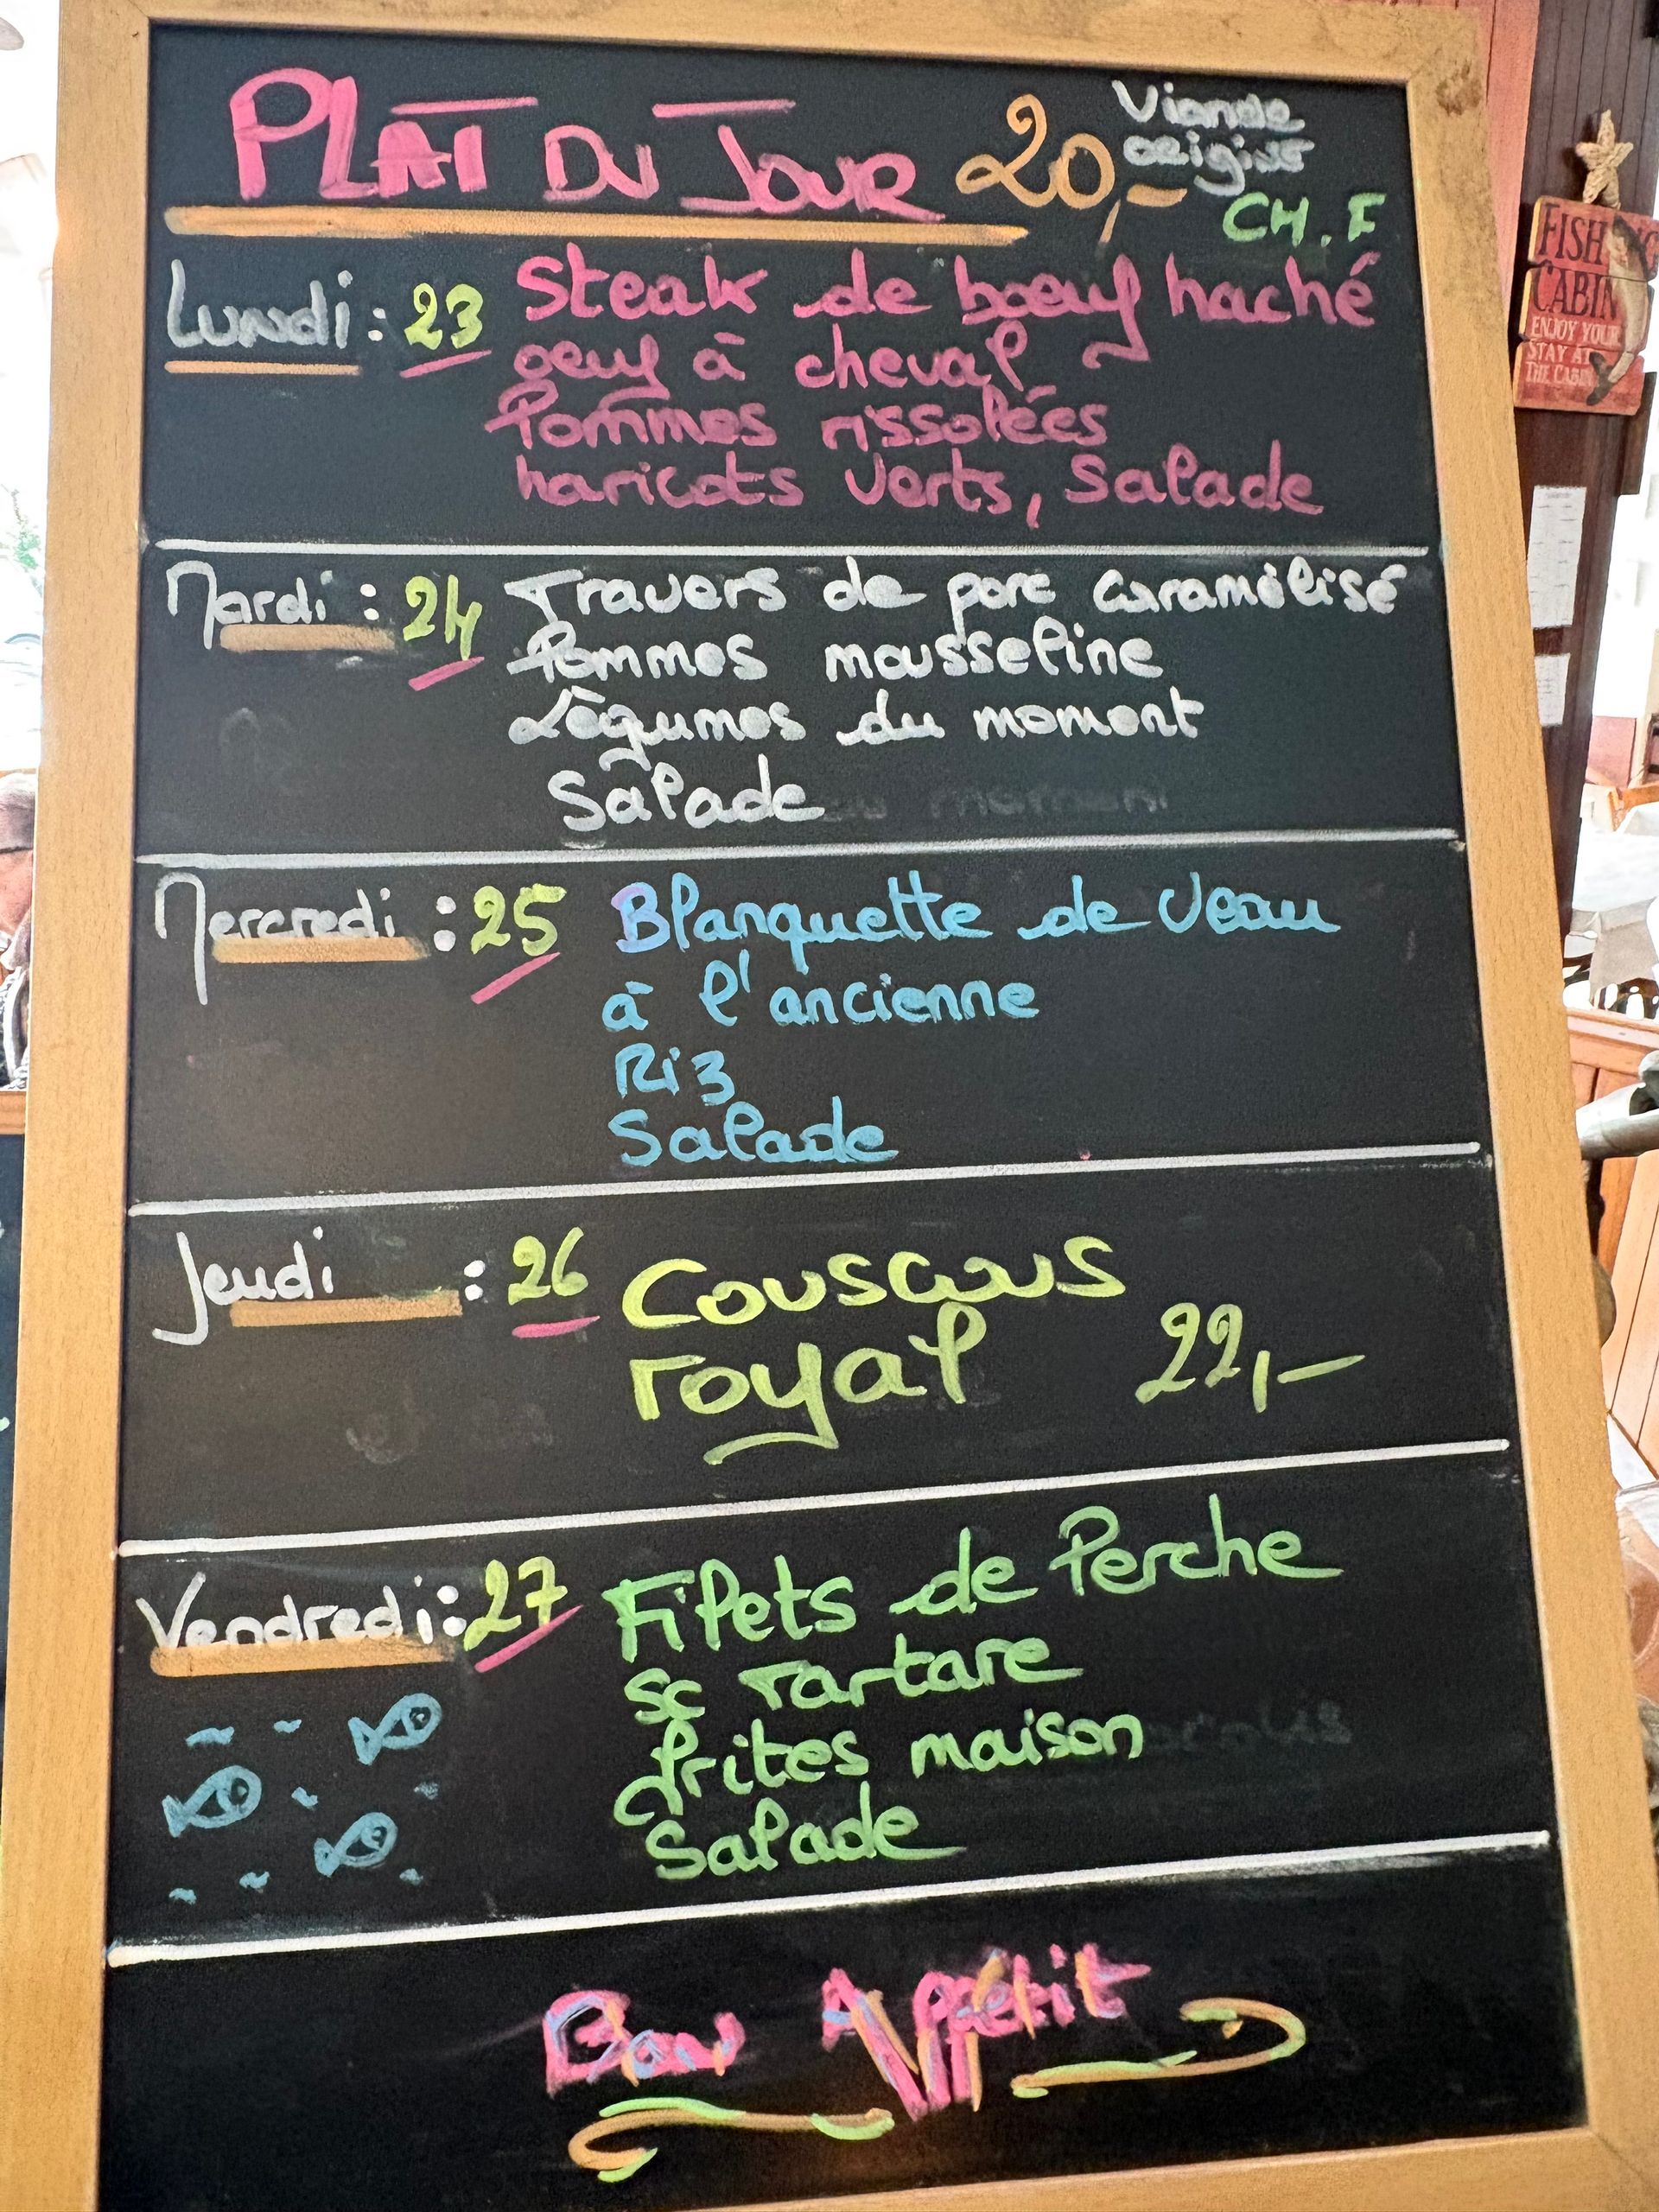 PLAT DU JOUR 20,-
Viande
origine
CH. F
Lundi : 23 Steak de bœuf haché
oeuf à cheval
Pommes rissolées
haricots verts, Salade
Mardi : 24 Travers de porc caramélisé
Pommes mousseline
Légumes du moment
Salade
Mercredi : 25 Blanquette de veau
à l'ancienne
Riz
Salade
Jeudi : 26 Couscous
royal 22,-
Vendredi : 27 Filets de Perche
sc tartare
frites maison
Salade
Bon Appétit
FISHING
CABIN
ENJOY YOUR
STAY AT
THE CABIN